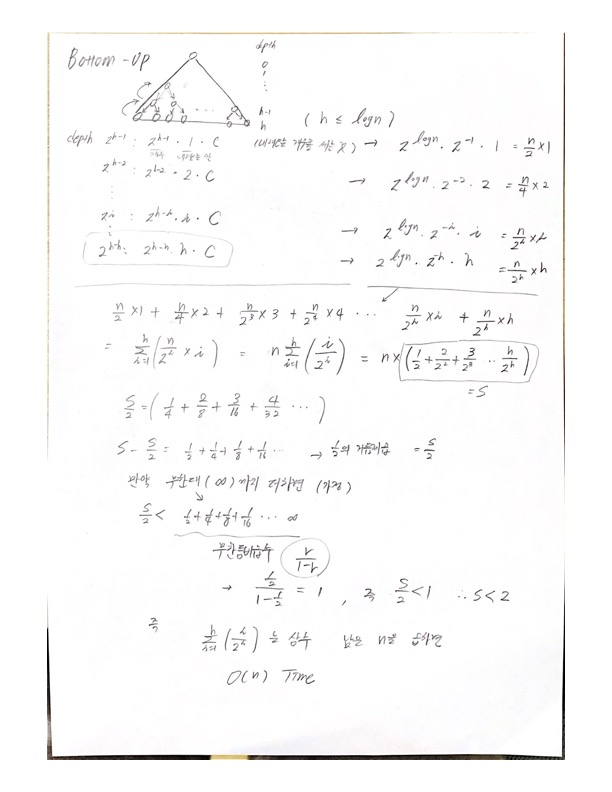 Bottom-up
depth
0
1
⋮
h-1
h
(h ≤ logn)
depth 2^{h-1} : 2^{h-1} · 1 · C → 2^{logn} · 2^{-1} · 1 = n/2 × 1
2^{h-2} : 2^{h-2} · 2 · C → 2^{logn} · 2^{-2} · 2 = n/4 × 2
⋮
2^{i} : 2^{h-i} · i · C → 2^{logn} · 2^{-i} · i = n/2^i × i
2^{h-h} : 2^{h-h} · h · C → 2^{logn} · 2^{-h} · h = n/2^h × h
n/2 × 1 + n/4 × 2 + n/2^3 × 3 + n/2^4 × 4 ··· n/2^i × i + n/2^h × h
= Σ_{i=1}^{h} (n/2^i × i) = n Σ_{i=1}^{h} (i/2^i) = n × (1/2 + 2/2^2 + 3/2^3 ·· h/2^h)
= S
S/2 = (1/4 + 2/8 + 3/16 + 4/32 ···)
S - S/2 = 1/2 + 1/4 + 1/8 + 1/16 ··· → 1/2의 = S/2
만약 무한대(∞)까지 더하면 (가정)
S/2 < 1/2 + 1/4 + 1/8 + 1/16 ··· ∞
무한등비급수 r/(1-r)
→ (1/2)/(1-1/2) = 1 , 즉 S/2 < 1 ∴ S < 2
즉
Σ_{i=1}^{h} (i/2^i) 는 상수 남은 n을 곱하면
O(n) Time